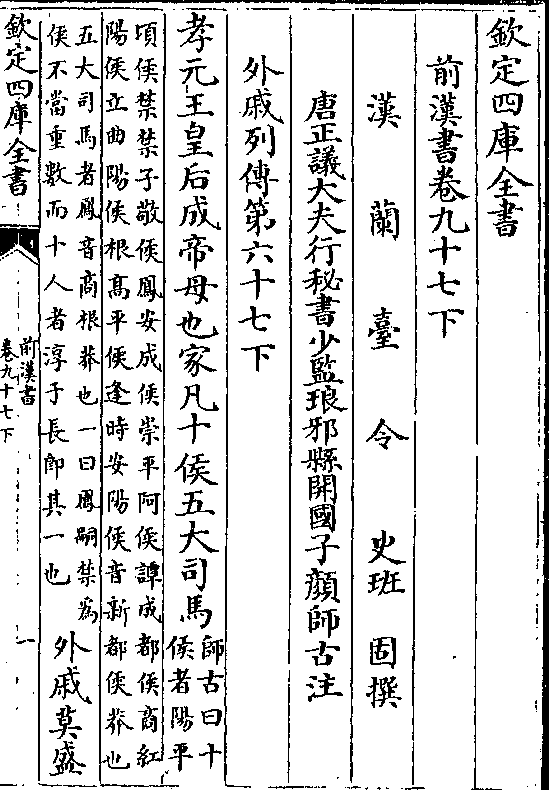 欽定四庫全書
前漢書卷九十七下
漢蘭臺令史班固撰
唐正議大夫行秘書少監琅邪縣開國子顏師古注
外戚列傳第六十七下
孝元王皇后成帝母也家凡十侯五大司馬
師古曰十
侯者陽平
頃侯禁禁子敬侯鳳安成侯崇平阿侯譚成都侯商紅
陽侯立曲陽侯根髙平侯逢時安陽侯音新都侯莽也
五大司馬者鳳音商根莽也一曰鳳嗣禁為
侯不當重數而十人者淳于長即其一也
外戚莫盛
欽定四庫全書
前漢書
卷九十七下
一